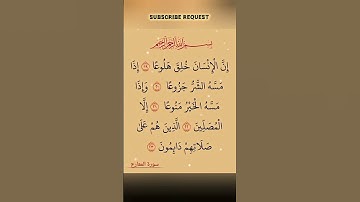 SUBSCRIBE REQUEST
بسم الله الرحمن الرحيم
إِنَّ الْإِنْسَانَ خُلِقَ هَلُوعًا ﴿١٩﴾ إِذَا
مَسَّهُ الشَّرُّ جَزُوعًا ﴿٢٠﴾ وَإِذَا
مَسَّهُ الْخَيْرُ مَنُوعًا ﴿٢١﴾ إِلَّا
الْمُصَلِّينَ ﴿٢٢﴾ الَّذِينَ هُمْ عَلَىٰ
صَلَاتِهِمْ دَائِمُونَ ﴿٢٣﴾
سورة المعارج